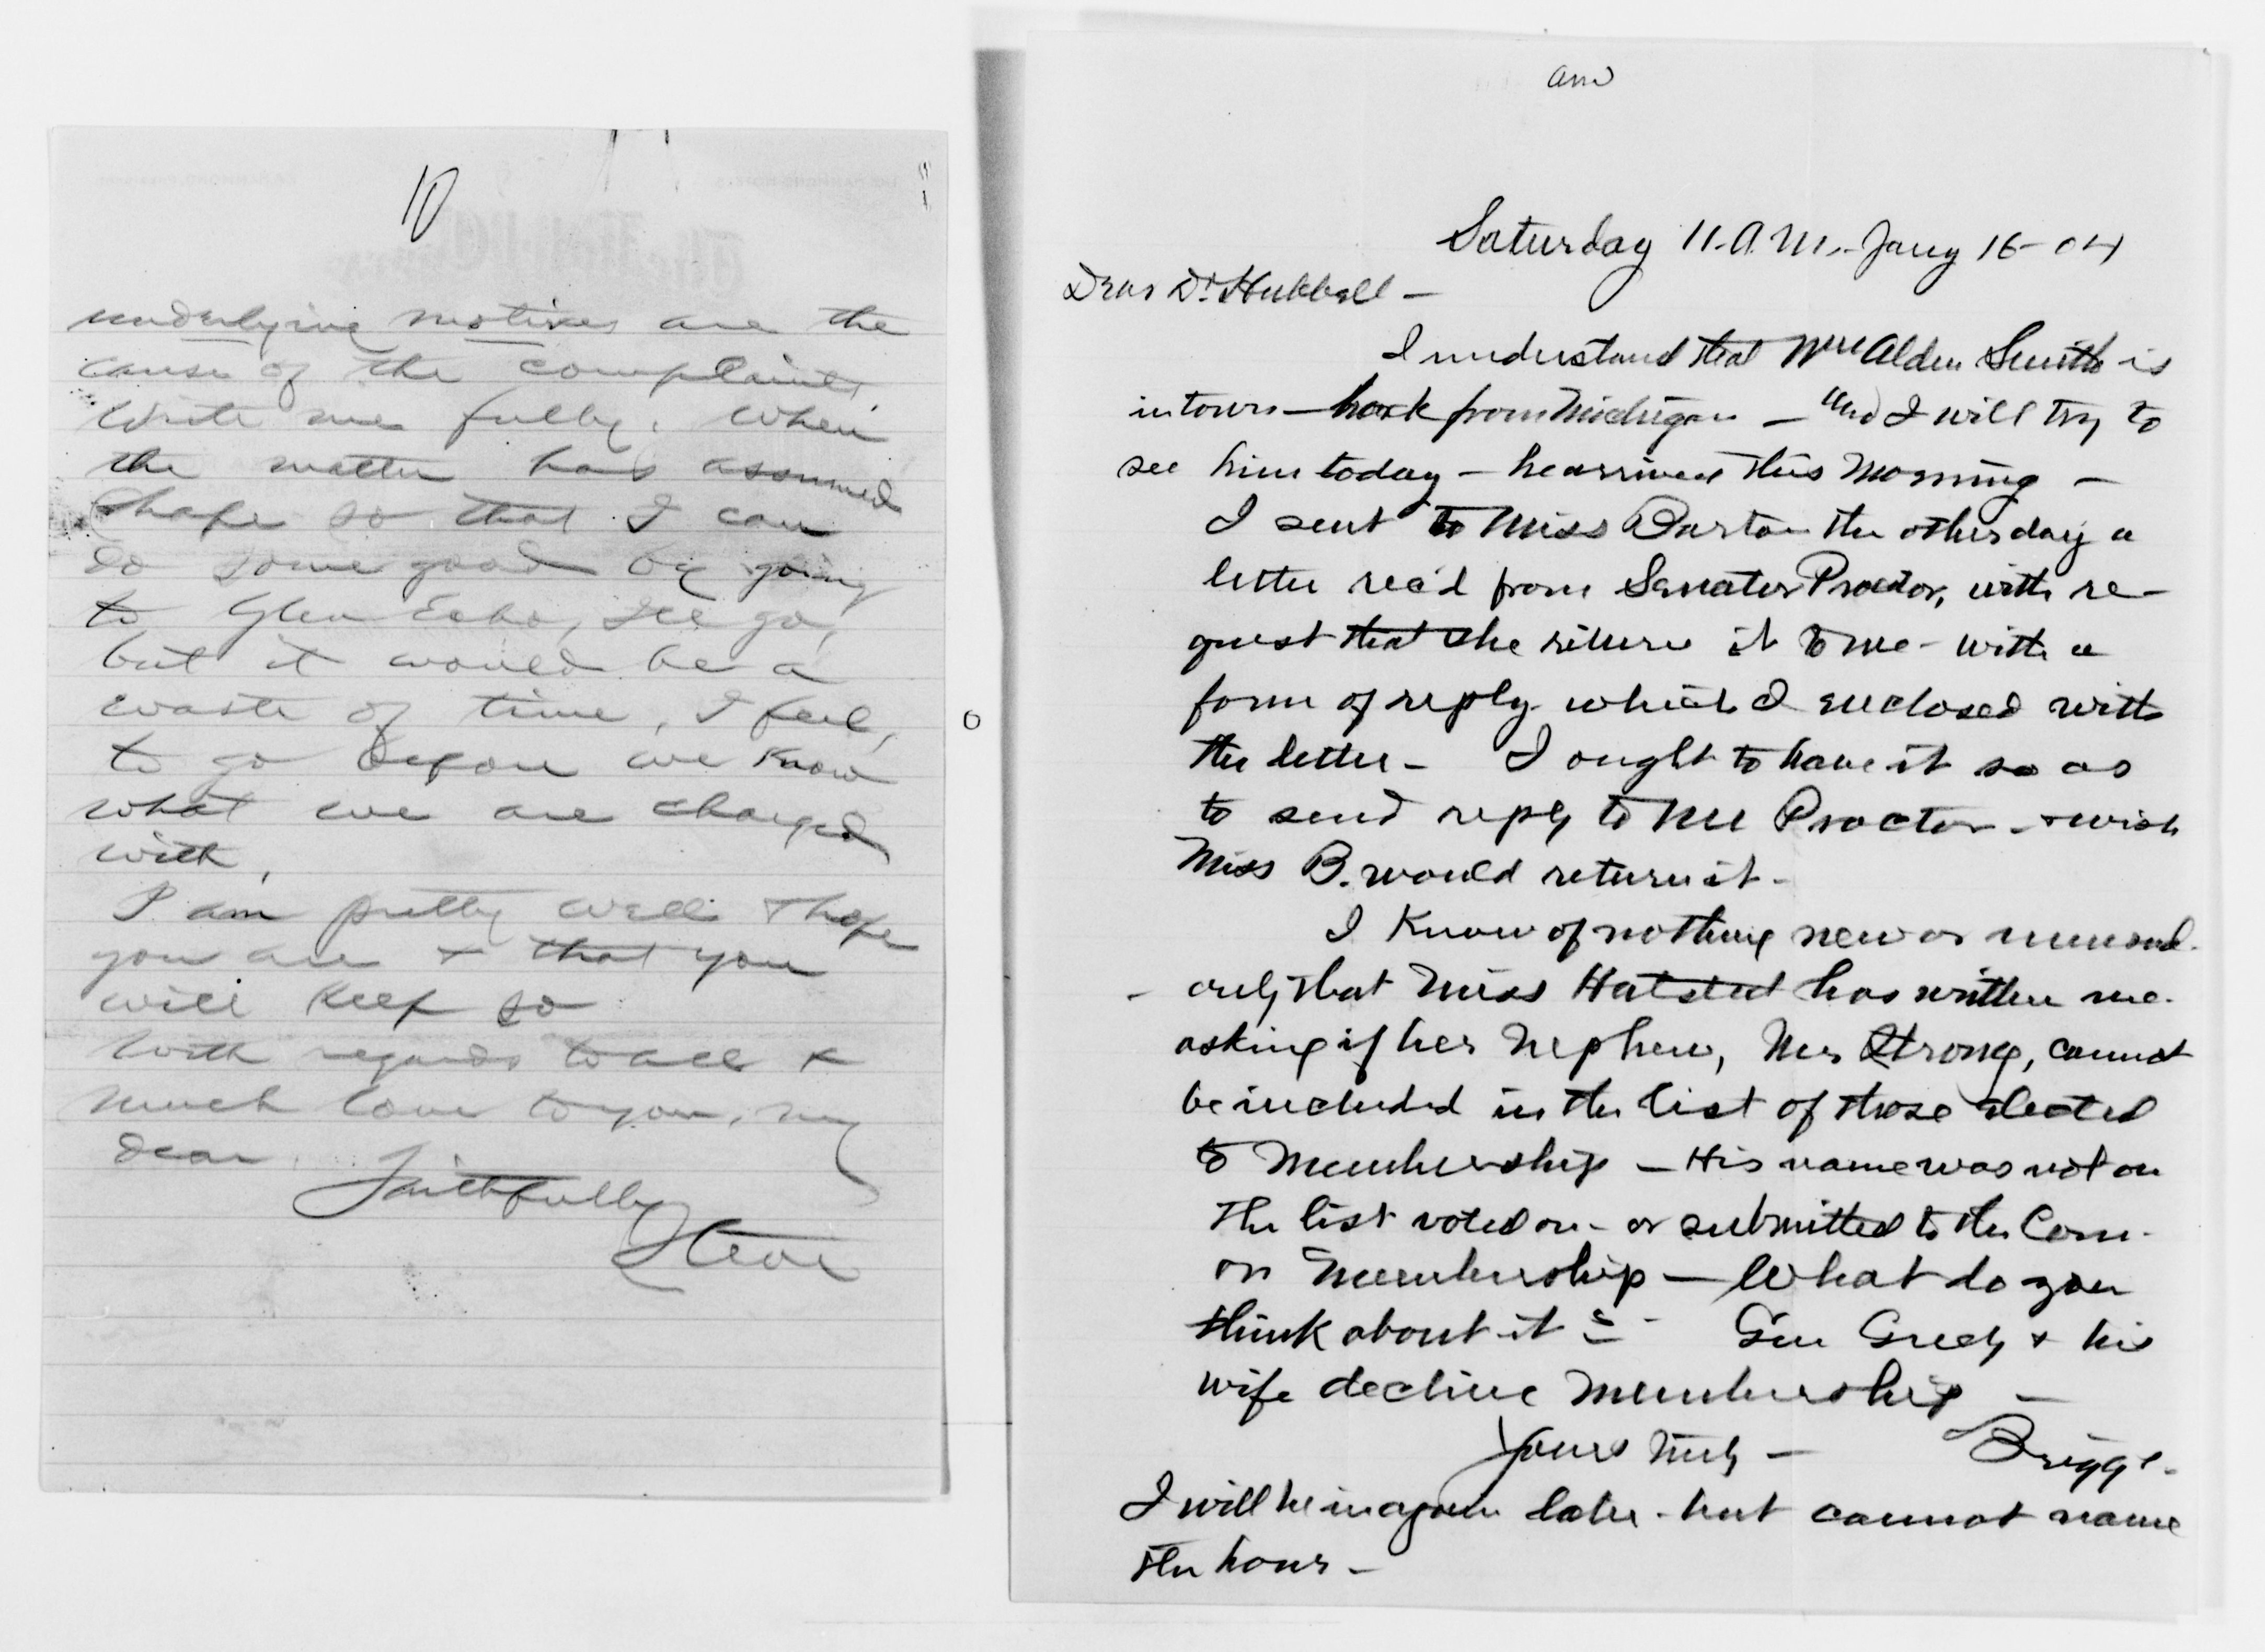 10
underlying motives are the
cause of the complaints.
Write me fully. When
the matter has assumed
shape so that I can
do some good by going
to Glen Echo, I'll go,
but it would be a
waste of time, I feel,
to go before we know
what we are charged
with.
I am pretty well & hope
you are & that you
will keep so
With regards to all &
much love to you, my
dear
Faithfully
Stevie
Saturday 11. A.M. Jany 16-04
Dear Dr. Hubbell —
I understand that Wm Alden Smith is
in town — back from Michigan — and I will try to
see him today — he arrived this morning —
I sent to Miss Barton the other day a
letter rec'd from Senator Proctor, with re-
quest that she return it to me - with a
form of reply which I enclosed with
the letter - I ought to have it so as
to send reply to Mr Proctor - & wish
Miss B. would return it -
I know of nothing new or unusual -
only that Miss Halsted has written me
asking if her nephew, Mr Strong, cannot
be included in the list of those elected
to membership — His name was not on
the list voted on - or submitted to the Com.
on Membership — What do you
think about it? - Gen Greely & his
wife decline membership —
Yours truly — Briggs -
I will be in again later - but cannot name
the hour -